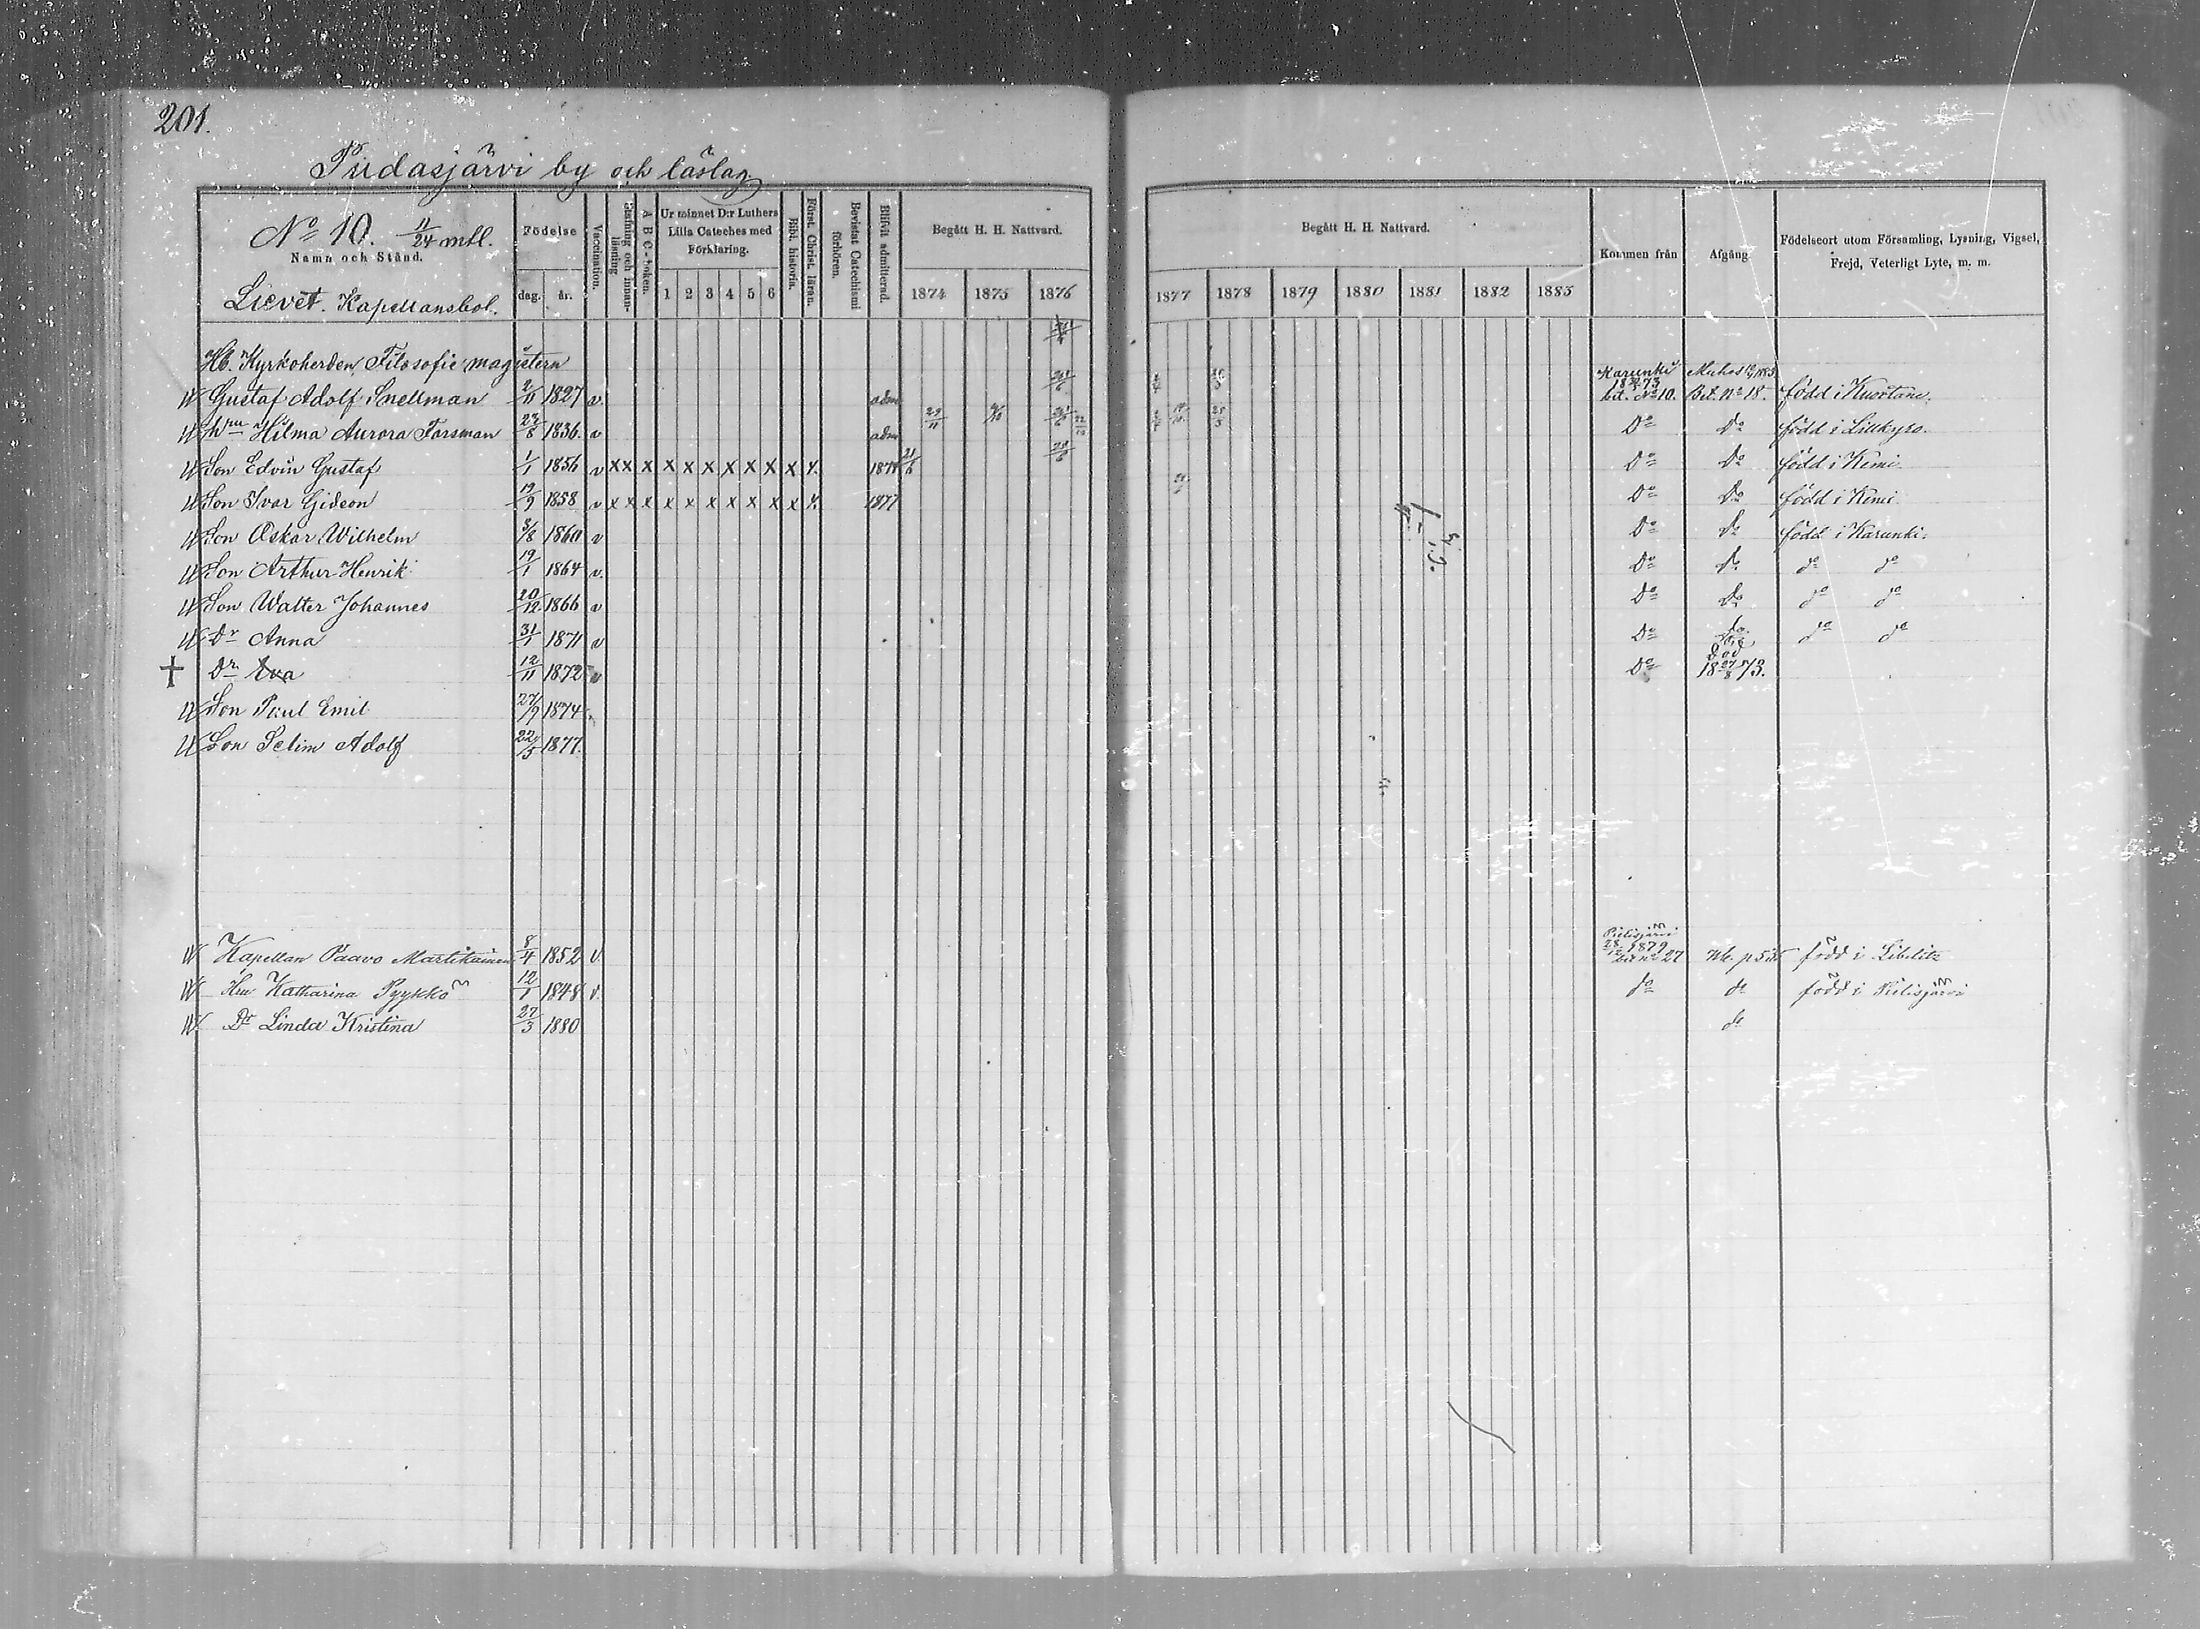 201.
Pudasjärvi by och läslag
No 10. 11/24 mtl.
Namn och Stånd.
Lievet. Kapellansbol.
Födelse
dag. år.
Vaccination.
Stafning och innan-läsning
A B C-boken.
Ur minnet D:r Luthers Lilla Cateches med Förklaring.
1 2 3 4 5 6
Bibl. historia.
Först. Christ. läran.
Bevistat Catechismi förhören.
Blifvit admitterad.
Begått H. H. Nattvard.
1874 1875 1876
Begått H. H. Nattvard.
1877 1878 1879 1880 1881 1882 1883
Kommen från
Afgång
Födelseort utom Församling, Lysning, Vigsel, Frejd, Veterligt Lyte, m. m.
Hb. Kyrkoherden, Filosofie magistern
Gustaf Adolf Snellman 2/11 1827 v adm Karunki 1873 bet. No 10. Muhos Bet. No 18. född i Kuortane.
Hu Hilma Aurora Forsman 23/8 1836. v adm 29/11 Do do född i Lillkyro.
Son Edvin Gustaf 1/1 1856 v x x x x x x x x x x x. 1874 21/6 Do Do född i Kemi
Son Ivar Gideon 19/9 1858 v x x x x x x x x x x x. 1877 Do Do född i Kemi
Son Oskar Wilhelm 3/8 1860 v Do do född i Karunki.
Son Arthur Henrik 19/1 1864 v. Do do do do
Son Walter Johannes 20/12 1866 v Do do do do
Dr Anna 31/1 1871 v Do do do do
† Dr Eva 12/11 1872 v Do död 18 27/8 73.
Son Paul Emil 27/9 1874.
Son Selim Adolf 22/5 1877.
Kapellan Paavo Martikainen 8/4 1852 v. Pielisjärvi 28/12 1879 bet no 27 född i Libelits
Hu Katharina Pyykkö 12/1 1848 v. do do född i Pielisjärvi
Dr Linda Kristina 27/3 1880 do